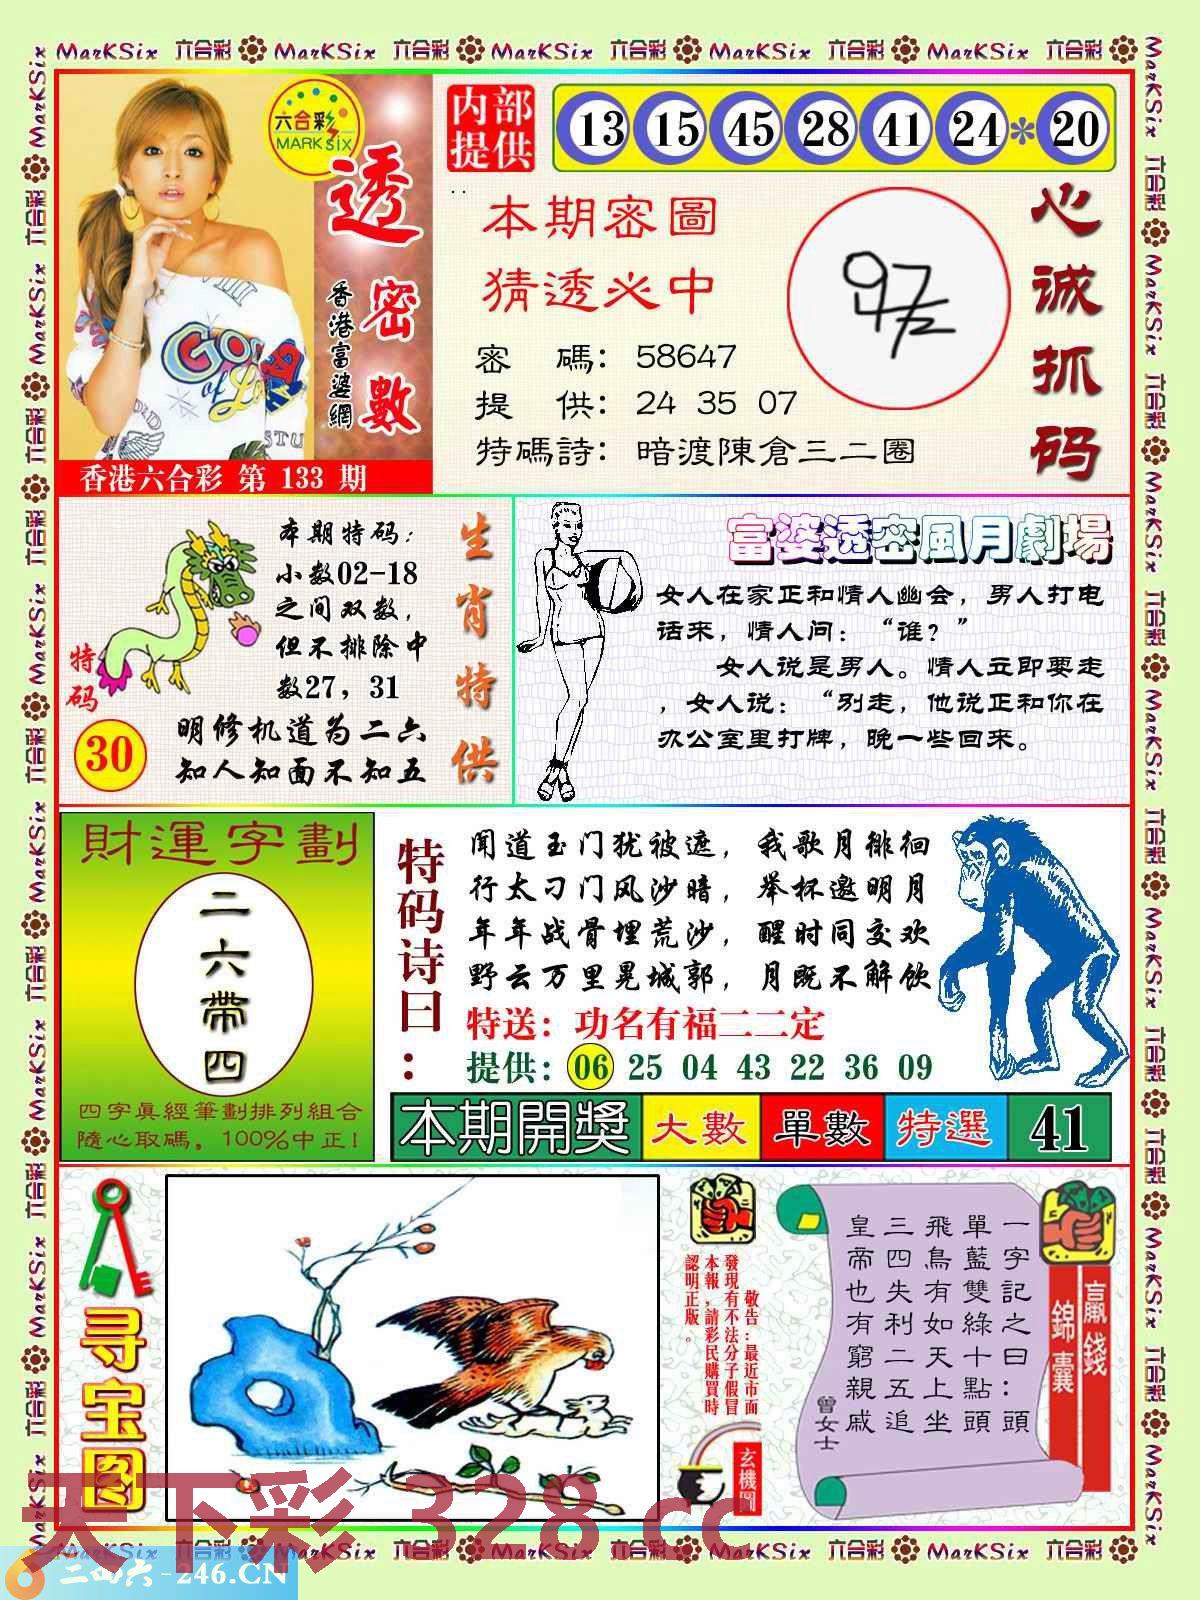 MarKSix 六合彩 MarKSix 六合彩 MarKSix 六合彩 MarKSix 六合彩 MarKSix 六合彩
六合彩
MARK SIX
透密數
香港富婆網
香港六合彩 第 133 期
内部
提供
13 15 45 28 41 24 * 20
本期密圖
猜透必中
密 碼: 58647
提 供: 24 35 07
特碼詩: 暗渡陳倉三二圈
心诚抓码
特码
30
本期特码:
小数02-18
之间双数,
但不排除中
数27, 31
明修机道为二六
知人知面不知五
生肖特供
富婆透密風月劇場
女人在家正和情人幽会，男人打电
话来，情人问：“谁？”
女人说是男人。情人立即要走
，女人说：“别走，他说正和你在
办公室里打牌，晚一些回来。
財運字劃
二六帶四
四字眞經筆劃排列組合
隨心取碼, 100%中正!
特码诗曰:
闻道玉门犹被遮, 我歌月徘徊
行太刁门风沙暗, 举杯邀明月
年年战骨埋荒沙, 醒时同交欢
野云万里晃城郭, 月既不解饮
特送: 功名有福二二定
提供: 06 25 04 43 22 36 09
本期開獎 大數 單數 特選 41
寻宝图
敬告:最近市面
發現有不法分子假冒
本報,請彩民購買時
認明正版。
玄機圖
一字記之曰:頭
單藍雙綠十點頭
飛鳥有如天上坐
三四失利二五追
皇帝也有窮親戚
曾女士
贏錢
錦囊
天下彩 328.cc
二四六-246.CN
MarKSix 六合彩 MarKSix 六合彩 MarKSix 六合彩 MarKSix 六合彩 MarKSix 六合彩